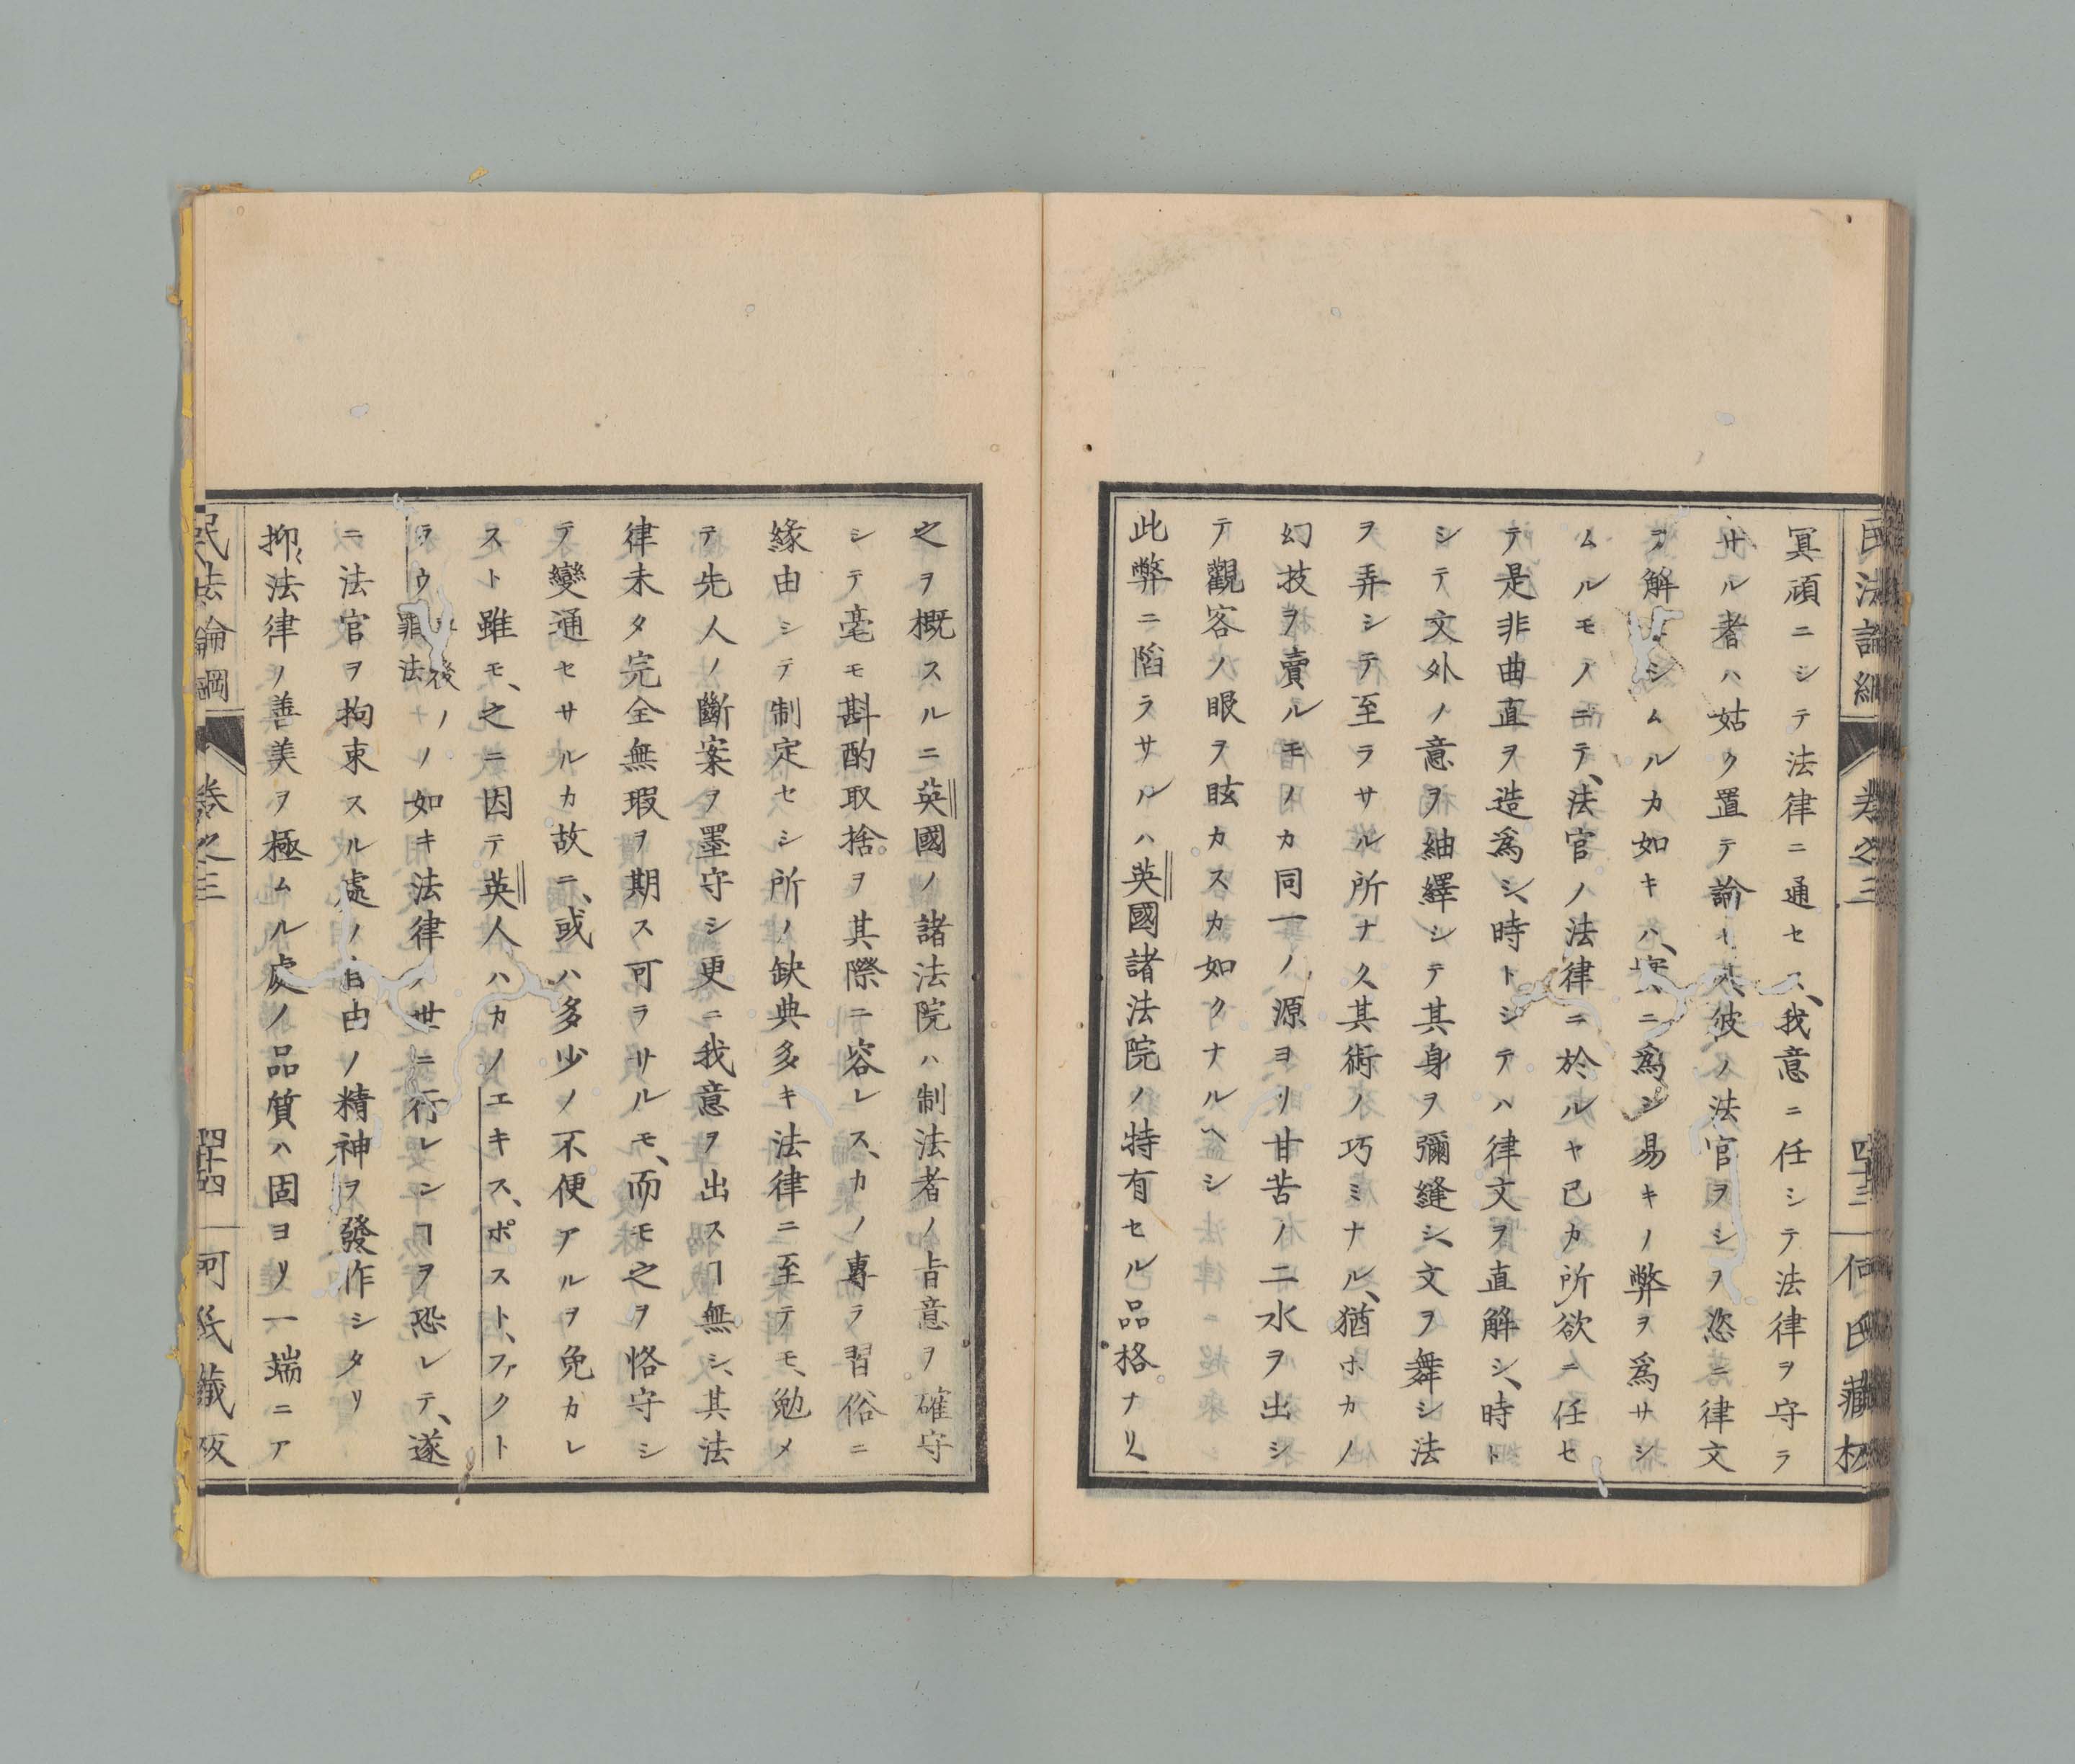 民法論綱 卷之三 四十三 何氏藏板
冥頑ニシテ法律ニ通セス、我意ニ任シテ法律ヲ守ラ
サル者ハ姑ク置テ論セス彼ノ法官ヲシヲ恣ニ律文
ヲ解セシムルカ如キハ、實ニ爲シ易キノ弊ヲ爲サシ
ムルモノニテ、法官ノ法律ニ於ルヤ已カ所欲ニ任セ
テ是非曲直ヲ造爲シ、時トシテハ律文ヲ直解シ、時ト
シテ文外ノ意ヲ紬繹シテ其身ヲ彌縫シ、文ヲ舞シ法
ヲ弄シテ至ラサル所ナク其術ノ巧ミナル、猶ホカノ
幻技ヲ賣ルモノカ同一ノ源ヨリ甘苦ノ二水ヲ出シ
テ觀客ノ眼ヲ眩カスカ如クナルヘシ
此弊ニ陷ラサルハ英國諸法院ノ特有セル品格ナリ
之ヲ概スルニ英國ノ諸法院ハ制法者ノ旨意ヲ確守
シテ毫モ斟酌取捨ヲ其際ニ容レス、カノ專ラ習俗ニ
緣由シテ制定セシ所ノ缺典多キ法律ニ至テモ、勉メ
テ先人ノ斷案ヲ墨守シ更ニ我意ヲ出スヿ無シ、其法
律未タ完全無瑕ヲ期ス可ラサルモ、而モ之ヲ恪守シ
テ變通セサルカ故ニ、或ハ多少ノ不便アルヲ免カレ
スト雖モ、之ニ因テ英人ハカノエキス、ポスト、ファクト
ヲウ罪後ノ法ノ如キ法律ノ世ニ行レンヿヲ恐レテ、遂
ニ法官ヲ拘束スル處ノ自由ノ精神ヲ發作シタリ
抑〻法律ノ善美ヲ極ムル處ノ品質ハ固ヨリ一端ニア
民法論綱 卷之三 四十四 何氏藏板